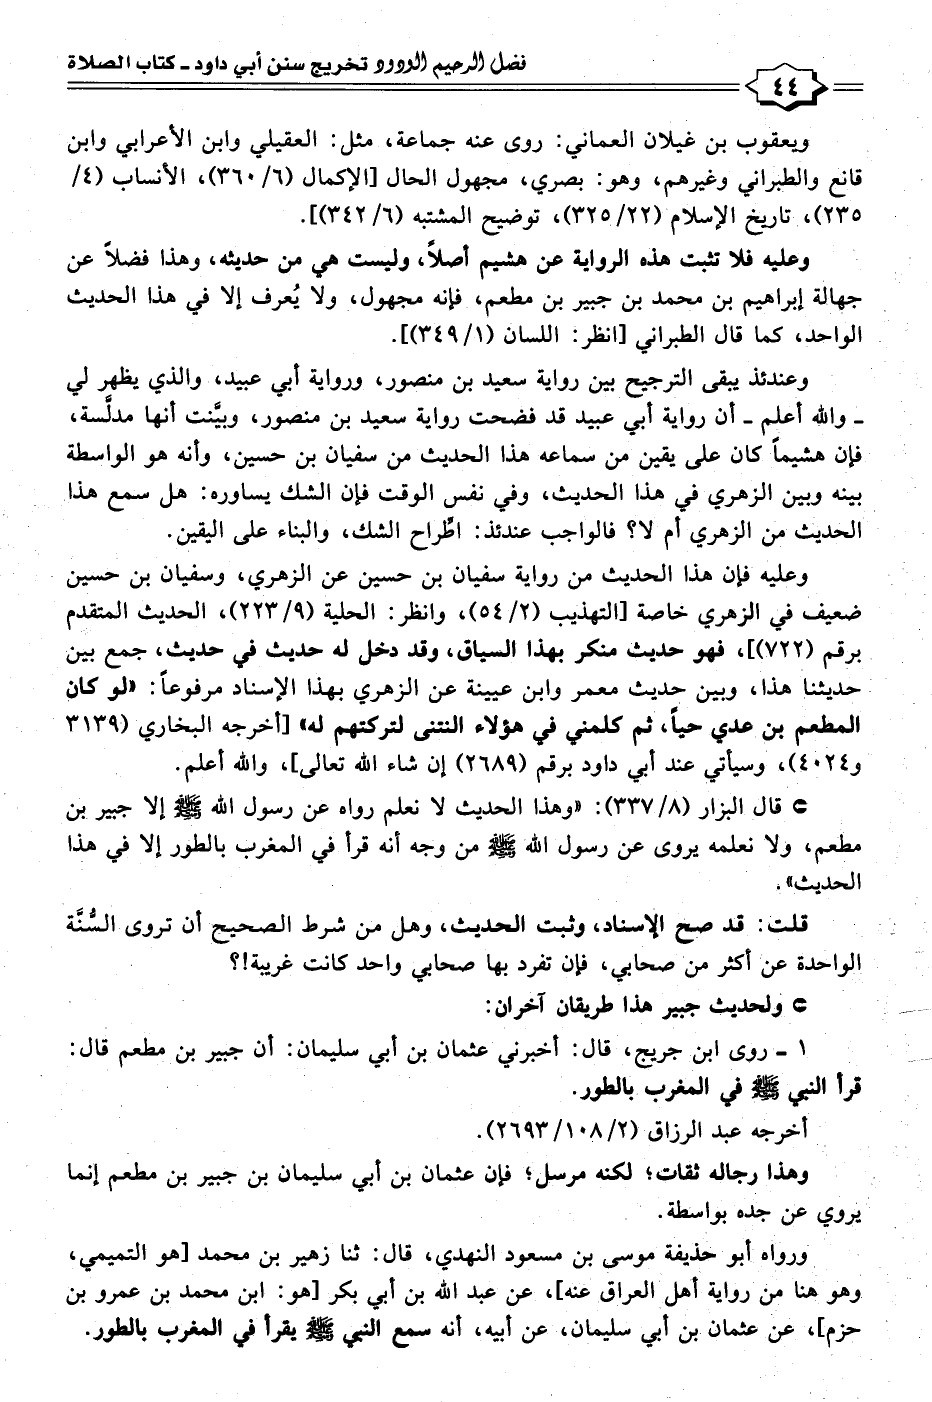 فضل الرحيم الودود تخريج سنن أبي داود - كتاب الصلاة
٤٤
ويعقوب بن غيلان العماني: روى عنه جماعة، مثل: العقيلي وابن الأعرابي وابن
قانع والطبراني وغيرهم، وهو: بصري، مجهول الحال [الإكمال (٣٦٠/٦)، الأنساب (٤/
٢٣٥)، تاريخ الإسلام (٣٢٥/٢٢)، توضيح المشتبه (٣٤٢/٦)].
وعليه فلا تثبت هذه الرواية عن هشيم أصلاً، وليست هي من حديثه، وهذا فضلاً عن
جهالة إبراهيم بن محمد بن جبير بن مطعم، فإنه مجهول، ولا يُعرف إلا في هذا الحديث
الواحد، كما قال الطبراني [انظر: اللسان (٣٤٩/١)].
وعندئذ يبقى الترجيح بين رواية سعيد بن منصور، ورواية أبي عبيد، والذي يظهر لي
ـ والله أعلم ـ أن رواية أبي عبيد قد فضحت رواية سعيد بن منصور، وبيَّنت أنها مدلَّسة،
فإن هشيماً كان على يقين من سماعه هذا الحديث من سفيان بن حسين، وأنه هو الواسطة
بينه وبين الزهري في هذا الحديث، وفي نفس الوقت فإن الشك يساوره: هل سمع هذا
الحديث من الزهري أم لا؟ فالواجب عندئذ: اطِّراح الشك، والبناء على اليقين.
وعليه فإن هذا الحديث من رواية سفيان بن حسين عن الزهري، وسفيان بن حسين
ضعيف في الزهري خاصة [التهذيب (٥٤/٢)، وانظر: الحلية (٢٢٣/٩)، الحديث المتقدم
برقم (٧٢٢)]، فهو حديث منكر بهذا السياق، وقد دخل له حديث في حديث، جمع بين
حديثنا هذا، وبين حديث معمر وابن عيينة عن الزهري بهذا الإسناد مرفوعاً: «لو كان
المطعم بن عدي حياً، ثم كلمني في هؤلاء النتنى لتركتهم له» [أخرجه البخاري (٣١٣٩
و٤٠٢٤)، وسيأتي عند أبي داود برقم (٢٦٨٩) إن شاء الله تعالى]، والله أعلم.
قال البزار (٣٣٧/٨): «وهذا الحديث لا نعلم رواه عن رسول الله ﷺ إلا جبير بن
مطعم، ولا نعلمه يروى عن رسول الله ﷺ من وجه أنه قرأ في المغرب بالطور إلا في هذا
الحديث».
قلت: قد صح الإسناد، وثبت الحديث، وهل من شرط الصحيح أن تروى السُّنَّة
الواحدة عن أكثر من صحابي، فإن تفرد بها صحابي واحد كانت غريبة!؟
ولحديث جبير هذا طريقان آخران:
١ ـ روى ابن جريج، قال: أخبرني عثمان بن أبي سليمان: أن جبير بن مطعم قال:
قرأ النبي ﷺ في المغرب بالطور.
أخرجه عبد الرزاق (٢/١٠٨/٢٦٩٣).
وهذا رجاله ثقات؛ لكنه مرسل؛ فإن عثمان بن أبي سليمان بن جبير بن مطعم إنما
يروي عن جده بواسطة.
ورواه أبو حذيفة موسى بن مسعود النهدي، قال: ثنا زهير بن محمد [هو التميمي،
وهو هنا من رواية أهل العراق عنه]، عن عبد الله بن أبي بكر [هو: ابن محمد بن عمرو بن
حزم]، عن عثمان بن أبي سليمان، عن أبيه، أنه سمع النبي ﷺ يقرأ في المغرب بالطور.